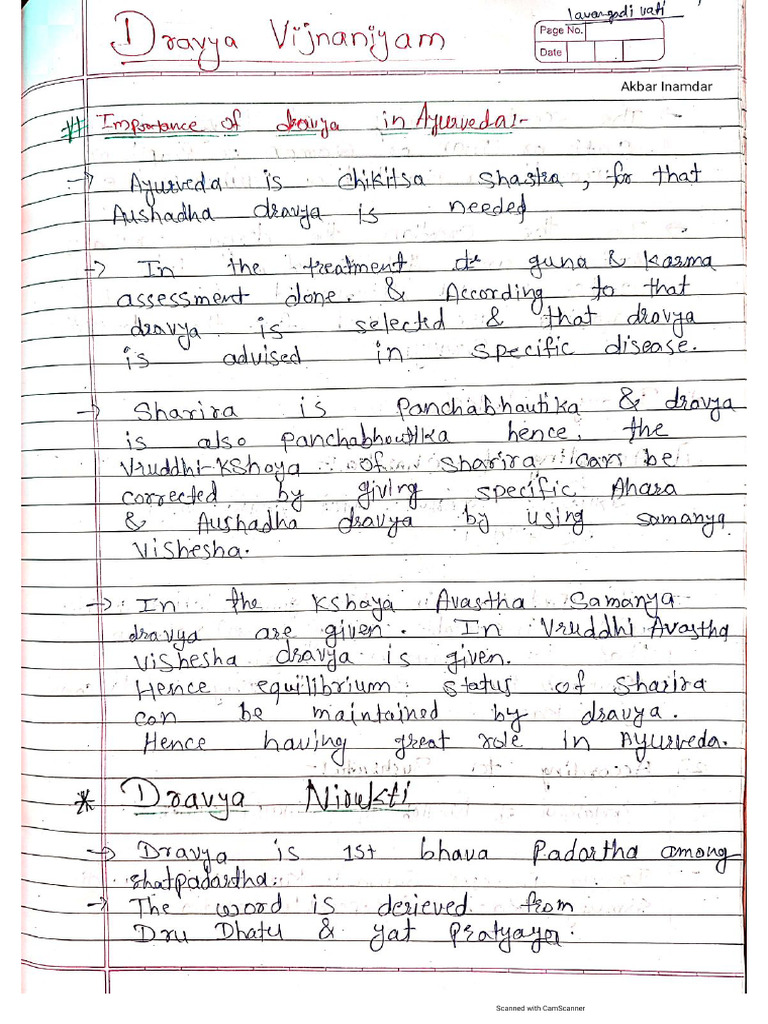 lavangadi vati
Dravya Vijnaniyam
Page No.
Date
Akbar Inamdar
Importance of dravya in Ayurveda:-
-> Ayurveda is chikitsa shastra, for that
Aushadha dravya is needed
-> In the treatment guna & Karma
assessment done. & According to that
dravya is selected & that dravya
is advised in specific disease.
-> Sharira is Panchabhautika & dravya
is also panchabhoutika hence, the
Vruddhi-Kshaya of sharira can be
corrected by giving specific Ahara
& Aushadha dravya by using samanya
Vishesha.
-> In the Kshaya Avastha Samanya
dravya are given. In Vruddhi Avastha
Vishesha dravya is given.
Hence equilibrium status of Sharira
can be maintained by dravya.
Hence having great role in Ayurveda.
* Dravya Nirukti
-> Dravya is 1st bhava Padartha among
shatpadartha.
-> The word is derieved from
Dru Dhatu & yat Pratyaya.
Scanned with CamScanner